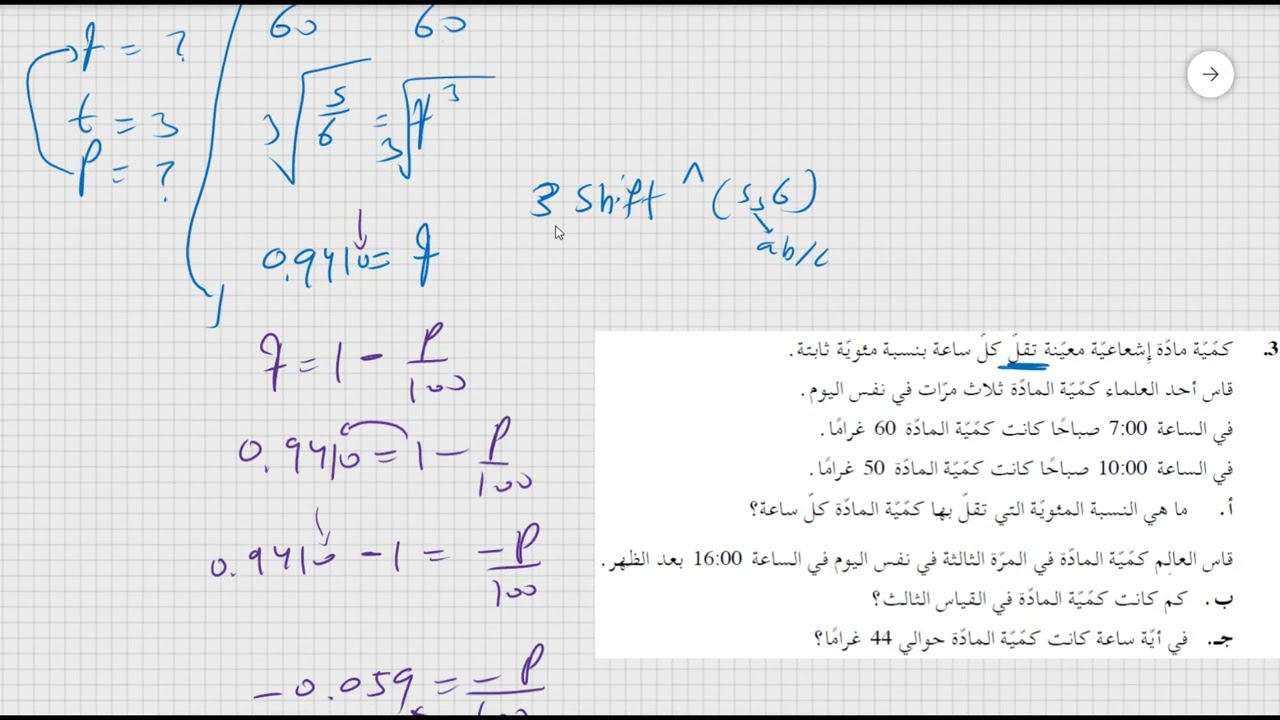 60 60
q = ?
t = 3
p = ?
3√(5/6) = 3√(q³)
3 Shift ^ (5⌟6)
ab/c
0.9410 = q
q = 1 - P/100
0.9410 = 1 - P/100
0.9410 - 1 = -P/100
-0.059 = -P/100
3. كمّيّة مادّة إشعاعيّة معيّنة تقلّ كلّ ساعة بنسبة مئويّة ثابتة.
قاس أحد العلماء كمّيّة المادّة ثلاث مرّات في نفس اليوم.
في الساعة 7:00 صباحًا كانت كمّيّة المادّة 60 غرامًا.
في الساعة 10:00 صباحًا كانت كمّيّة المادّة 50 غرامًا.
أ. ما هي النسبة المئويّة التي تقلّ بها كمّيّة المادّة كلّ ساعة؟
قاس العالِم كمّيّة المادّة في المرّة الثالثة في نفس اليوم في الساعة 16:00 بعد الظهر.
ب. كم كانت كمّيّة المادّة في القياس الثالث؟
جـ. في أيّة ساعة كانت كمّيّة المادّة حوالي 44 غرامًا؟